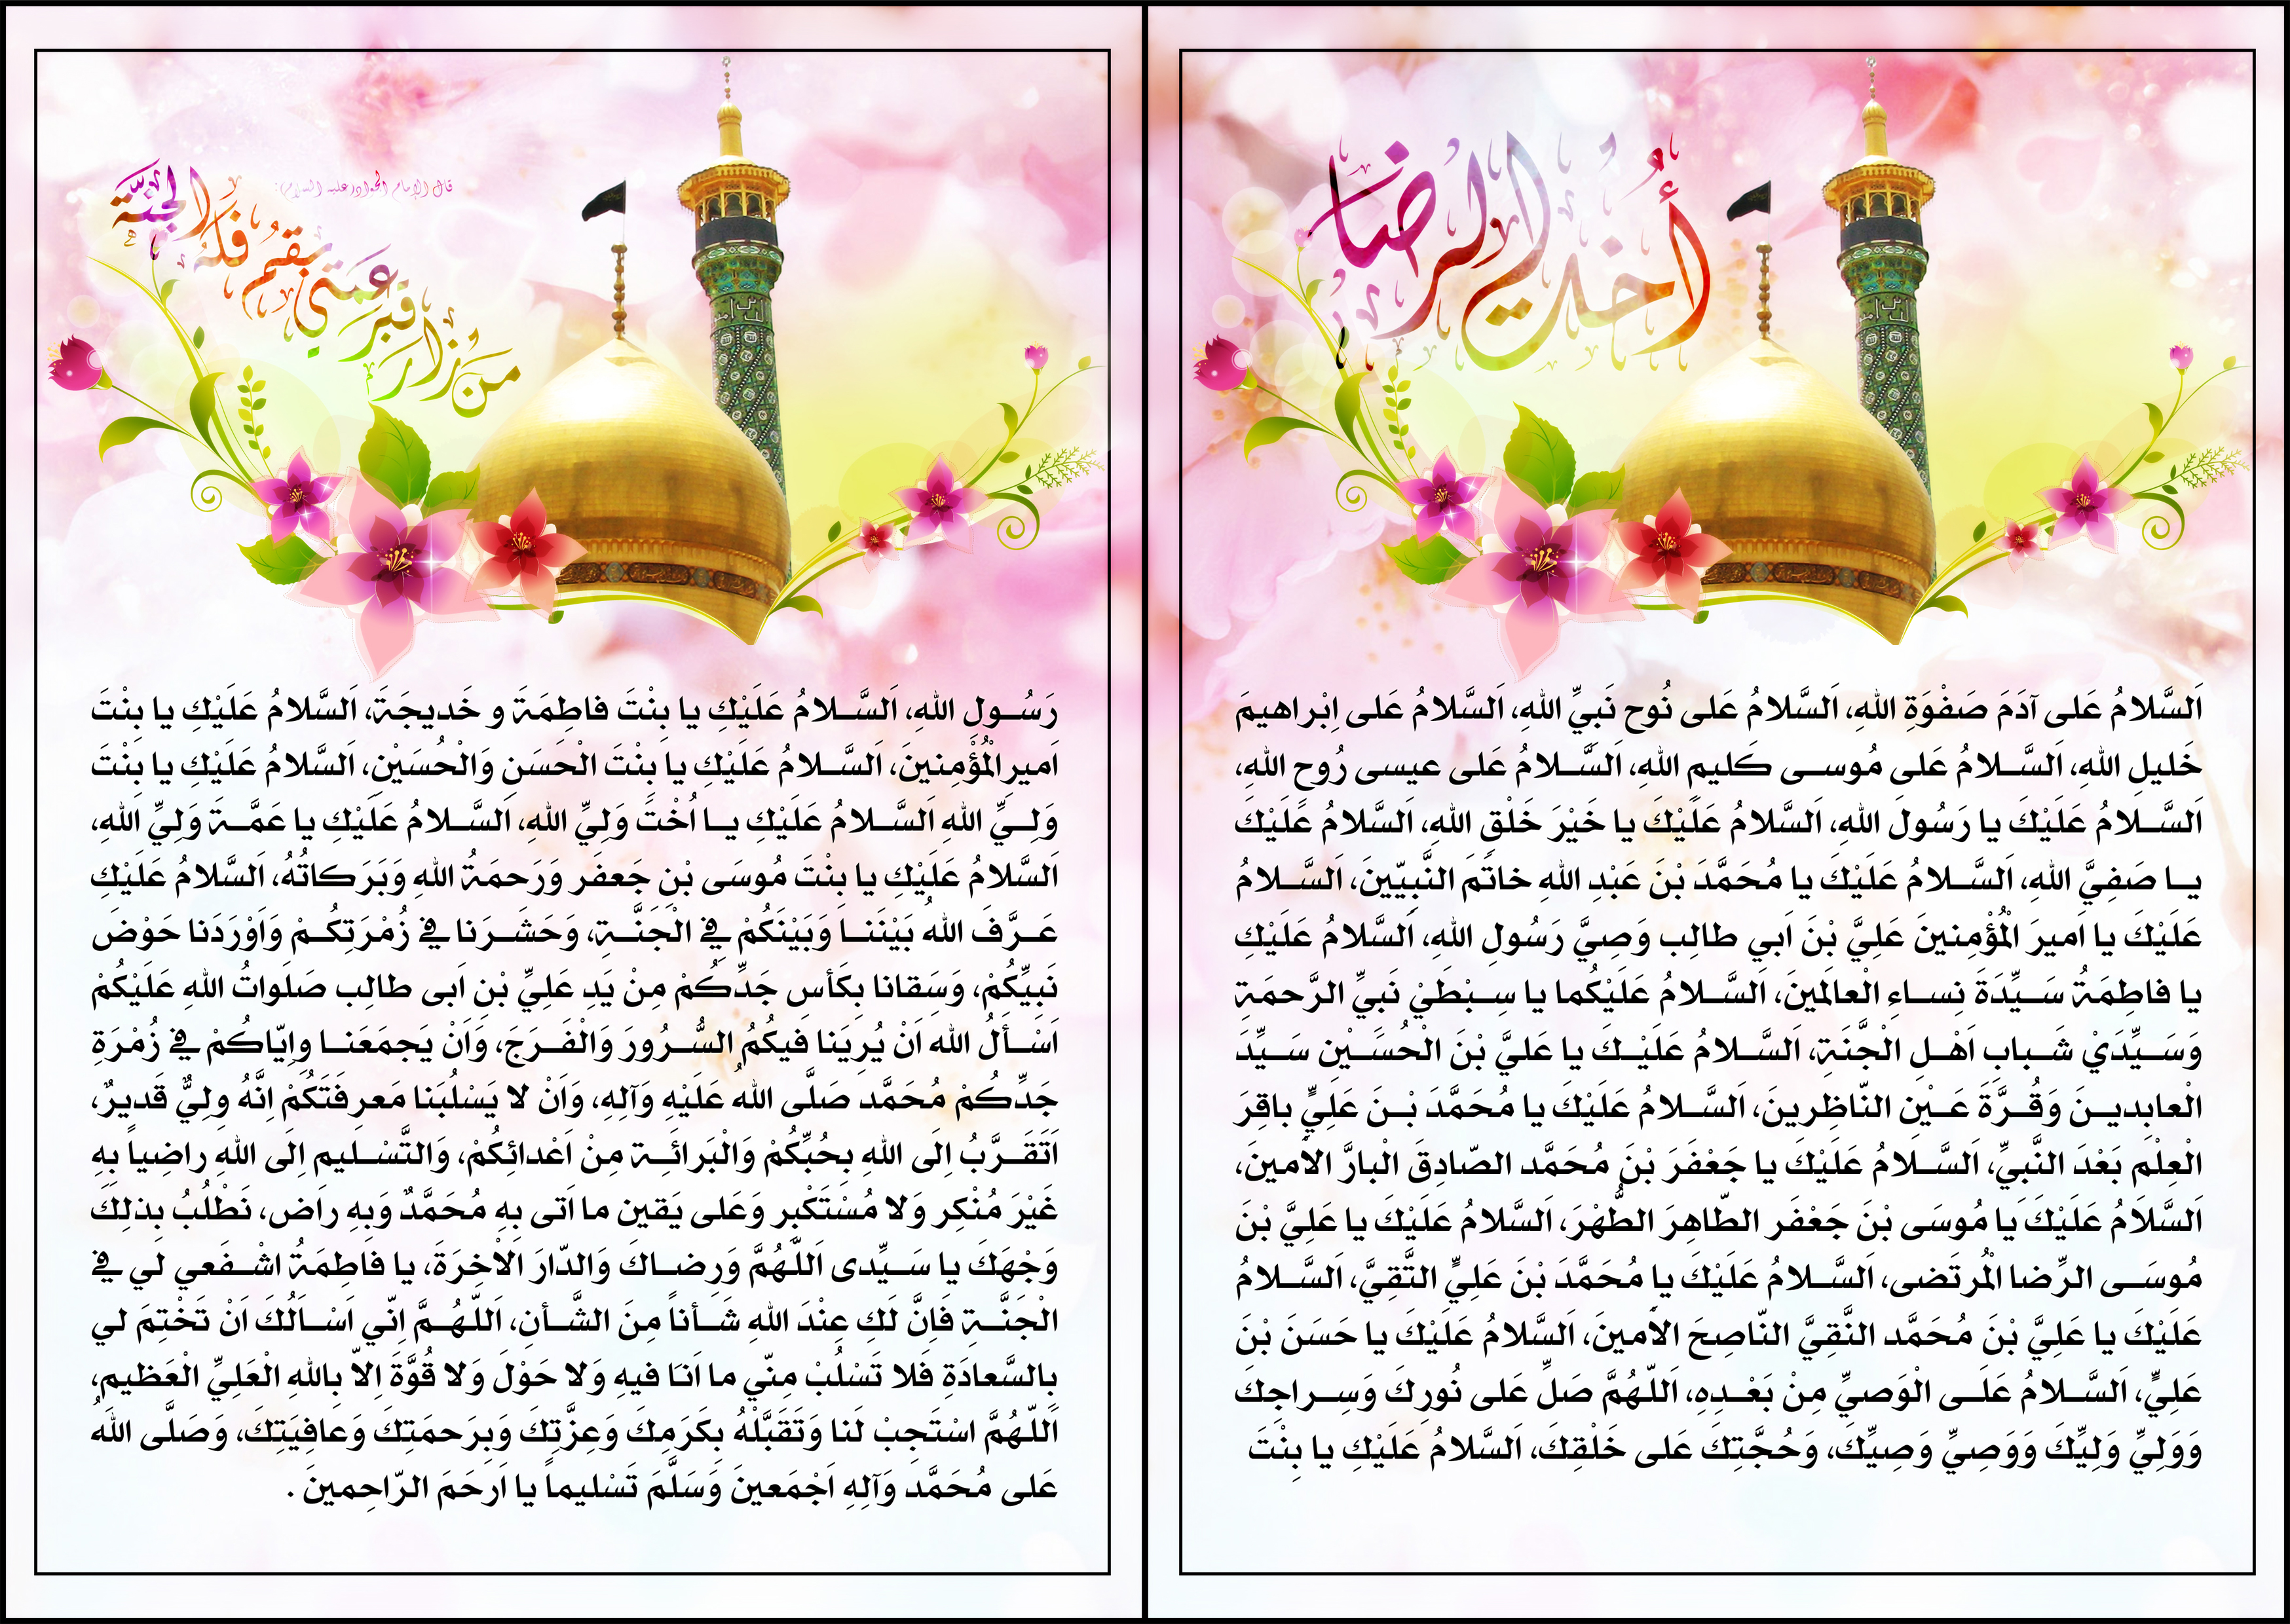 أخت الرضا
اَلسَّلامُ عَلى آدَمَ صَفْوَةِ اللهِ، اَلسَّلامُ عَلى نُوح نَبيِّ اللهِ، اَلسَّلامُ عَلى اِبْراهيمَ
خَليلِ اللهِ، اَلسَّــلامُ عَلى مُوســى كَليمِ اللهِ، اَلسَّــلامُ عَلى عيسى رُوحِ اللهِ،
اَلسَّــلامُ عَلَيْكَ يا رَسُولَ اللهِ، اَلسَّلامُ عَلَيْكَ يا خَيْرَ خَلْقِ اللهِ، اَلسَّلامُ عَلَيْكَ
يــا صَفِيَّ اللهِ، اَلسَّــلامُ عَلَيْكَ يا مُحَمَّدَ بْنَ عَبْدِ اللهِ خاتَمَ النَّبِيّينَ، اَلسَّــلامُ
عَلَيْكَ يا اَميرَ الْمُؤْمِنينَ عَلِيَّ بْنَ اَبي طالِب وَصِيَّ رَسُولِ اللهِ، اَلسَّلامُ عَلَيْكِ
يا فاطِمَةُ سَــيِّدَةَ نِســاءِ الْعالَمينَ، اَلسَّــلامُ عَلَيْكُما يا سِــبْطَيْ نَبيِّ الرَّحمَةِ
وَسَــيِّدَيْ شَــبابِ اَهْــلِ الْجَنَّةِ، اَلسَّــلامُ عَلَيْــكَ يا عَليَّ بْنَ الْحُسَــيْنِ سَــيِّدَ
الْعابِديــنَ وَقُــرَّةَ عَــيْنِ النّاظِرينَ، اَلسَّــلامُ عَلَيْكَ يا مُحَمَّدَ بْــنَ عَلِيٍّ باقِرَ
الْعِلْمِ بَعْدَ النَّبيِّ، اَلسَّــلامُ عَلَيْكَ يا جَعْفَرَ بْنَ مُحَمَّد الصّادِقَ الْبارَّ الأمينَ،
اَلسَّلَامُ عَلَيْكَ يا مُوسَى بْنَ جَعْفَر الطّاهِرَ الطُّهْرَ، اَلسَّلامُ عَلَيْكَ يا عَلِيَّ بْنَ
مُوسَــى الرِّضا الْمُرتَضى، اَلسَّــلامُ عَلَيْكَ يا مُحَمَّدَ بْنَ عَلِيٍّ التَّقِيَّ، اَلسَّــلامُ
عَلَيْكَ يا عَلِيَّ بْنَ مُحَمَّد النَّقِيَّ النّاصِحَ الأمينَ، اَلسَّلامُ عَلَيْكَ يا حَسَنَ بْنَ
عَلِيٍّ، اَلسَّــلامُ عَلَــى الْوَصيِّ مِنْ بَعْــدِهِ، اَللّهُمَّ صَلِّ عَلى نُورِكَ وَسِــراجِكَ
وَوَلِيِّ وَلِيِّكَ وَوَصِيِّ وَصِيِّكَ، وَحُجَّتِكَ عَلى خَلْقِكَ، اَلسَّلامُ عَلَيْكِ يا بِنْتَ
قال الإمام الجواد عليه السلام:
من زار قبر عمتي بقم فله الجنة
رَسُــولِ اللهِ، اَلسَّــلامُ عَلَيْكِ يا بِنْتَ فاطِمَةَ و خَديجَةَ، اَلسَّلامُ عَلَيْكِ يا بِنْتَ
اَميرِ الْمُؤْمِنينَ، اَلسَّــلامُ عَلَيْكِ يا بِنْتَ الْحَسَنِ وَالْحُسَيْنِ، اَلسَّلامُ عَلَيْكِ يا بِنْتَ
وَلِــيِّ اللهِ اَلسَّــلامُ عَلَيْكِ يــا اُخْتَ وَلِيِّ اللهِ، اَلسَّــلامُ عَلَيْكِ يا عَمَّــةَ وَلِيِّ اللهِ،
اَلسَّلامُ عَلَيْكِ يا بِنْتَ مُوسَى بْنِ جَعفَر وَرَحمَةُ اللهِ وَبَرَكاتُهُ، اَلسَّلامُ عَلَيْكِ
عَــرَّفَ اللهُ بَيْنَنــا وَبَيْنَكُمْ فِي الْجَنَّــةِ، وَحَشَــرَنا في زُمْرَتِكُــمْ وَاَوْرَدَنا حَوْضَ
نَبِيِّكُمْ، وَسَقانا بِكَأسِ جَدِّكُمْ مِنْ يَدِ عَلِيِّ بْنِ اَبى طالِب صَلَواتُ اللهِ عَلَيْكُمْ
اَسْــألُ اللهَ اَنْ يُرِيَنا فيكُمُ السُّــرُورَ وَالْفَــرَجَ، وَاَنْ يَجمَعَنــا وَاِيّاكُمْ في زُمْرَةِ
جَدِّكُمْ مُحَمَّد صَلَّى اللهُ عَلَيْهِ وَآلِهِ، وَاَنْ لا يَسْلُبَنا مَعرِفَتَكُمْ اِنَّهُ وَلِيٌّ قَديرٌ،
اَتَقَــرَّبُ اِلَى اللهِ بِحُبِّكُمْ وَالْبَرائَــةِ مِنْ اَعْدائِكُمْ، وَالتَّسْــليمِ اِلَى اللهِ راضِياً بِهِ
غَيْرَ مُنْكِر وَلا مُسْتَكْبِر وَعَلى يَقينِ ما اَتى بِهِ مُحَمَّدٌ وَبِهِ راض، نَطْلُبُ بِذلِكَ
وَجْهَكَ يا سَــيِّدى اَللّهُمَّ وَرِضــاكَ وَالدّارَ الآخِرَةَ، يا فاطِمَةُ اشْــفَعي لي فِي
الْجَنَّــةِ فَاِنَّ لَكِ عِنْدَ اللهِ شَــأناً مِنَ الشَّــأنِ، اَللّهُــمَّ اِنّي اَسْــاَلُكَ اَنْ تَخْتِمَ لي
بِالسَّعادَةِ فَلا تَسْلُبْ مِنّي ما اَنَا فيهِ وَلا حَوْلَ وَلا قُوَّةَ اِلاّ بِاللهِ الْعَلِيِّ الْعَظيمِ،
اَللّهُمَّ اسْتَجِبْ لَنا وَتَقَبَّلْهُ بِكَرَمِكَ وَعِزَّتِكَ وَبِرَحمَتِكَ وَعافِيَتِكَ، وَصَلَّى اللهُ
عَلى مُحَمَّد وَآلِهِ اَجْمَعينَ وَسَلَّمَ تَسْليماً يا اَرحَمَ الرّاحِمينَ .